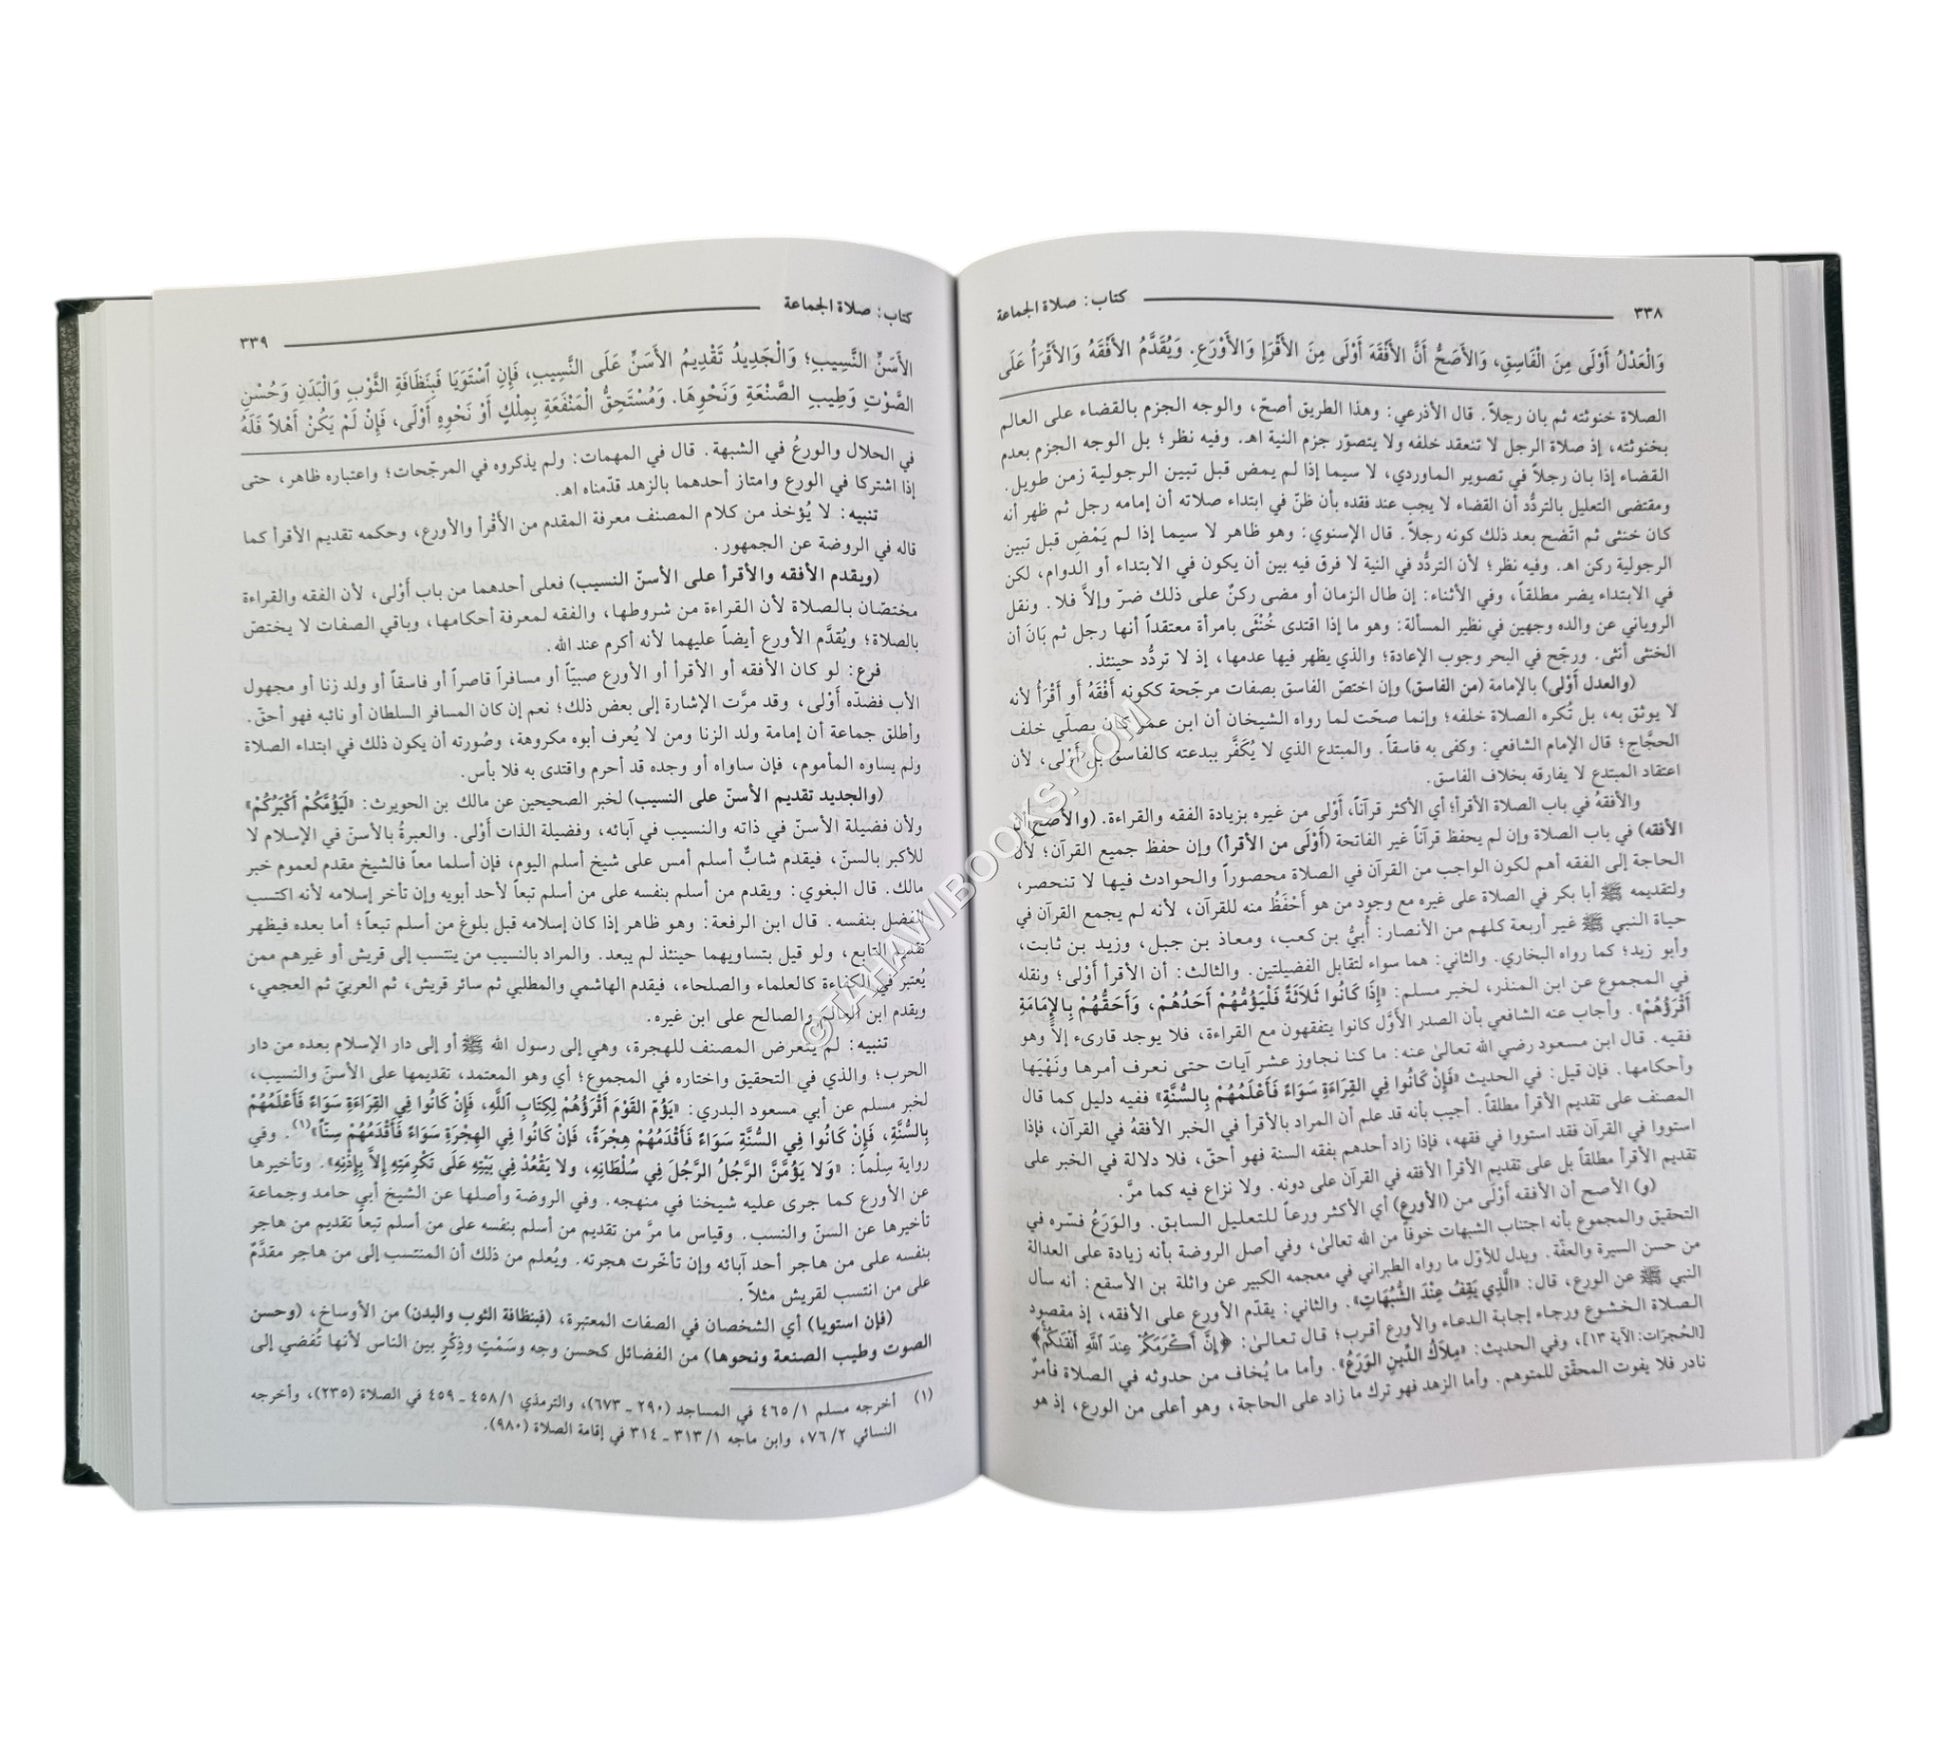 ٣٣٨ كتاب: صلاة الجماعة
وَالْعَدْلُ أَوْلَى مِنَ الْفَاسِقِ، وَالأَصَحُّ أَنَّ الأَفْقَهَ أَوْلَى مِنَ الأَقْرَإِ وَالأَوْرَعِ. وَيُقَدَّمُ الأَفْقَهُ وَالأَقْرَأُ عَلَى
الصلاة خنوثته ثم بان رجلاً. قال الأذرعي: وهذا الطريق أصحّ، والوجه الجزم بالقضاء على العالم
بخنوثته، إذ صلاة الرجل لا تنعقد خلفه ولا يتصوّر جزم النية اهـ. وفيه نظر؛ بل الوجه الجزم بعدم
القضاء إذا بان رجلاً في تصوير الماوردي، لا سيما إذا لم يمض قبل تبين الرجولية زمن طويل.
ومقتضى التعليل بالتردُّد أن القضاء لا يجب عند فقده بأن ظنّ في ابتداء صلاته أن إمامه رجل ثم ظهر أنه
كان خنثى ثم اتّضح بعد ذلك كونه رجلاً. قال الإسنوي: وهو ظاهر لا سيما إذا لم يَمْضِ قبل تبين
الرجولية ركن اهـ. وفيه نظر؛ لأن التردُّد في النية لا فرق فيه بين أن يكون في الابتداء أو الدوام، لكن
في الابتداء يضر مطلقاً، وفي الأثناء: إن طال الزمان أو مضى ركنٌ على ذلك ضرّ وإلاَّ فلا. ونقل
الروياني عن والده وجهين في نظير المسألة: وهو ما إذا اقتدى خُنْثَى بامرأة معتقداً أنها رجل ثم بَانَ أن
الخنثى أنثى. ورجّح في البحر وجوب الإعادة؛ والذي يظهر فيها عدمها، إذ لا تردُّد حينئذ.
(والعدل أَوْلى) بالإمامة (من الفاسق) وإن اختصّ الفاسق بصفات مرجّحة ككونه أَفْقَهُ أَو أَقْرَأُ لأنه
لا يوثق به، بل تُكره الصلاة خلفه؛ وإنما صحّت لما رواه الشيخان أن ابن عمر كان يصلّي خلف
الحجَّاج؛ قال الإمام الشافعي: وكفى به فاسقاً. والمبتدع الذي لا يُكَفَّر ببدعته كالفاسق بل أَوْلى، لأن
اعتقاد المبتدع لا يفارقه بخلاف الفاسق.
والأفقهُ في باب الصلاة الأقرأ؛ أي الأكثر قرآناً، أَوْلى من غيره بزيادة الفقه والقراءة. (والأصح أن
الأفقه) في باب الصلاة وإن لم يحفظ قرآناً غير الفاتحة (أَوْلَى من الأقرأ) وإن حفظ جميع القرآن؛ لأن
الحاجة إلى الفقه أهم لكون الواجب من القرآن في الصلاة محصوراً والحوادث فيها لا تنحصر،
ولتقديمه ﷺ أبا بكر في الصلاة على غيره مع وجود من هو أَحْفَظُ منه للقرآن، لأنه لم يجمع القرآن في
حياة النبي ﷺ غير أربعة كلهم من الأنصار: أُبيُّ بن كعب، ومعاذ بن جبل، وزيد بن ثابت،
وأبو زيد؛ كما رواه البخاري. والثاني: هما سواء لتقابل الفضيلتين. والثالث: أن الأقرأ أَوْلى؛ ونقله
في المجموع عن ابن المنذر، لخبر مسلم: «إِذَا كَانُوا ثَلَاثَةً فَلْيَؤُمُّهُمْ أَحَدُهُمْ، وَأَحَقُّهُمْ بِالإِمَامَةِ
أَقْرَؤُهُمْ». وأجاب عنه الشافعي بأن الصدر الأوَّل كانوا يتفقهون مع القراءة، فلا يوجد قارىء إلاَّ وهو
فقيه. قال ابن مسعود رضي الله تعالى عنه: ما كنا نجاوز عشر آيات حتى نعرف أمرها ونَهْيَها
وأحكامها. فإن قيل: في الحديث «فَإِنْ كَانُوا فِي القِرَاءَةِ سَوَاءً فَأَعْلَمُهُمْ بِالسُّنَّةِ» ففيه دليل كما قال
المصنف على تقديم الأقرأ مطلقاً. أجيب بأنه قد علم أن المراد بالأقرأ في الخبر الأفقهُ في القرآن، فإذا
استووا في القرآن فقد استووا في فقهه، فإذا زاد أحدهم بفقه السنة فهو أحقّ، فلا دلالة في الخبر على
تقديم الأقرأ مطلقاً بل على تقديم الأقرأ الأفقه في القرآن على دونه. ولا نزاع فيه كما مرَّ.
(و) الأصح أن الأفقه أَوْلَى من (الأورع) أي الأكثر ورعاً للتعليل السابق. والوَرَعُ فسّره في
التحقيق والمجموع بأنه اجتناب الشبهات خوفاً من الله تعالى، وفي أصل الروضة بأنه زيادة على العدالة
من حسن السيرة والعفّة. ويدل للأوّل ما رواه الطبراني في معجمه الكبير عن واثلة بن الأسقع: أنه سأل
النبي ﷺ عن الورع، قال: «الَّذِي يَقِفُ عِنْدَ الشُّبُهَاتِ». والثاني: يقدّم الأورع على الأفقه، إذ مقصود
الصلاة الخشوع ورجاء إجابة الدعاء والأورع أقرب؛ قال تعالى: ﴿إِنَّ أَكْرَمَكُمْ عِنْدَ اللَّهِ أَتْقَاكُمْ﴾
[الحُجرَات: الآية ١٣]، وفي الحديث: «مِلَاكُ الدِّينِ الوَرَعُ». وأما ما يُخاف من حدوثه في الصلاة فأمرٌ
نادر فلا يفوت المحقّق للمتوهم. وأما الزهد فهو ترك ما زاد على الحاجة، وهو أعلى من الورع، إذ هو
كتاب: صلاة الجماعة ٣٣٩
الأَسَنِّ النَّسِيبِ؛ وَالْجَدِيدُ تَقْدِيمُ الأَسَنِّ عَلَى النَّسِيبِ، فَإِنِ اسْتَوَيَا فَبِنَظَافَةِ الثَّوْبِ وَالْبَدَنِ وَحُسْنِ
الصَّوْتِ وَطِيبِ الصَّنْعَةِ وَنَحْوِهَا. وَمُسْتَحِقُّ الْمَنْفَعَةِ بِمِلْكٍ أَوْ نَحْوِهِ أَوْلَى، فَإِنْ لَمْ يَكُنْ أَهْلاً فَلَهُ
في الحلال والورعُ في الشبهة. قال في المهمات: ولم يذكروه في المرجّحات؛ واعتباره ظاهر، حتى
إذا اشتركا في الورع وامتاز أحدهما بالزهد قدّمناه اهـ.
تنبيه: لا يُؤخذ من كلام المصنف معرفة المقدم من الأَقْرأ والأورع، وحكمه تقديم الأقرأ كما
قاله في الروضة عن الجمهور.
(ويقدم الأفقه والأقرأ على الأسنّ النسيب) فعلى أحدهما من باب أَوْلى، لأن الفقه والقراءة
مختصّان بالصلاة لأن القراءة من شروطها، والفقه لمعرفة أحكامها، وباقي الصفات لا يختصّ
بالصلاة؛ ويُقدَّم الأورع أيضاً عليهما لأنه أكرم عند الله.
فرع: لو كان الأفقه أو الأقرأ أو الأورع صبيّاً أو مسافراً قاصراً أو فاسقاً أو ولد زنا أو مجهول
الأب فضدّه أَوْلى، وقد مرَّت الإشارة إلى بعض ذلك؛ نعم إن كان المسافر السلطان أو نائبه فهو أحقّ.
وأطلق جماعة أن إمامة ولد الزنا ومن لا يُعرف أبوه مكروهة، وصُورته أن يكون ذلك في ابتداء الصلاة
ولم يساوه المأموم، فإن ساواه أو وجده قد أحرم واقتدى به فلا بأس.
(والجديد تقديم الأسنّ على النسيب) لخبر الصحيحين عن مالك بن الحويرث: «لَيَؤُمَّكُمْ أَكْبَرُكُمْ»
ولأن فضيلة الأسنّ في ذاته والنسيب في آبائه، وفضيلة الذات أَوْلى. والعبرةُ بالأسنّ في الإسلام لا
للأكبر بالسنّ، فيقدم شابٌّ أسلم أمس على شيخ أسلم اليوم، فإن أسلما معاً فالشيخ مقدم لعموم خبر
مالك. قال البغوي: ويقدم من أسلم بنفسه على من أسلم تبعاً لأحد أبويه وإن تأخر إسلامه لأنه اكتسب
الفضل بنفسه. قال ابن الرفعة: وهو ظاهر إذا كان إسلامه قبل بلوغ من أسلم تبعاً؛ أما بعده فيظهر
تقديم التابع، ولو قيل بتساويهما حينئذ لم يبعد. والمراد بالنسيب من ينتسب إلى قريش أو غيرهم ممن
يُعتبر في الكفاءة كالعلماء والصلحاء، فيقدم الهاشمي والمطلبي ثم سائر قريش، ثم العربيّ ثم العجمي،
ويقدم ابن العالم والصالح على ابن غيره.
تنبيه: لم يتعرض المصنف للهجرة، وهي إلى رسول الله ﷺ أو إلى دار الإسلام بعده من دار
الحرب؛ والذي في التحقيق واختاره في المجموع؛ أي وهو المعتمد، تقديمها على الأسنّ والنسيب،
لخبر مسلم عن أبي مسعود البدري: «يَؤُمّ القَوْمَ أَقْرَؤُهُمْ لِكِتَابِ اللَّهِ، فَإِنْ كَانُوا فِي القِرَاءَةِ سَوَاءً فَأَعْلَمُهُمْ
بِالسُّنَّةِ، فَإِنْ كَانُوا فِي السُّنَّةِ سَوَاءً فَأَقْدَمُهُمْ هِجْرَةً، فَإِنْ كَانُوا فِي الهِجْرَةِ سَوَاءً فَأَقْدَمُهُمْ سِنّاً»(١). وفي
رواية سِلْماً: «وَلا يَؤُمَّنَّ الرَّجُلُ الرَّجُلَ فِي سُلْطَانِهِ، ولا يَقْعُدْ فِي بَيْتِهِ عَلَى تَكْرِمَتِهِ إِلاَّ بِإِذْنِهِ». وتأخيرها
عن الأورع كما جرى عليه شيخنا في منهجه. وفي الروضة وأصلها عن الشيخ أبي حامد وجماعة
تأخيرها عن السنّ والنسب. وقياس ما مرَّ من تقديم من أسلم بنفسه على من أسلم تبعاً تقديم من هاجر
بنفسه على من هاجر أحد آبائه وإن تأخّرت هجرته. ويُعلم من ذلك أن المنتسب إلى من هاجر مقدَّمٌ
على من انتسب لقريش مثلاً.
(فإن استويا) أي الشخصان في الصفات المعتبرة، (فبنظافة الثوب والبدن) من الأوساخ، (وحسن
الصوت وطيب الصنعة ونحوها) من الفضائل كحسن وجه وسَمْتٍ وذِكْرٍ بين الناس لأنها تُفضي إلى
(١) أخرجه مسلم ٤٦٥/١ في المساجد (٢٩٠ ـ ٦٧٣)، والترمذي ٤٥٨/١ ـ ٤٥٩ في الصلاة (٢٣٥)، وأخرجه
النسائي ٧٦/٢، وابن ماجه ٣١٣/١ ـ ٣١٤ في إقامة الصلاة (٩٨٠).
@TAHAWIBOOKS.COM